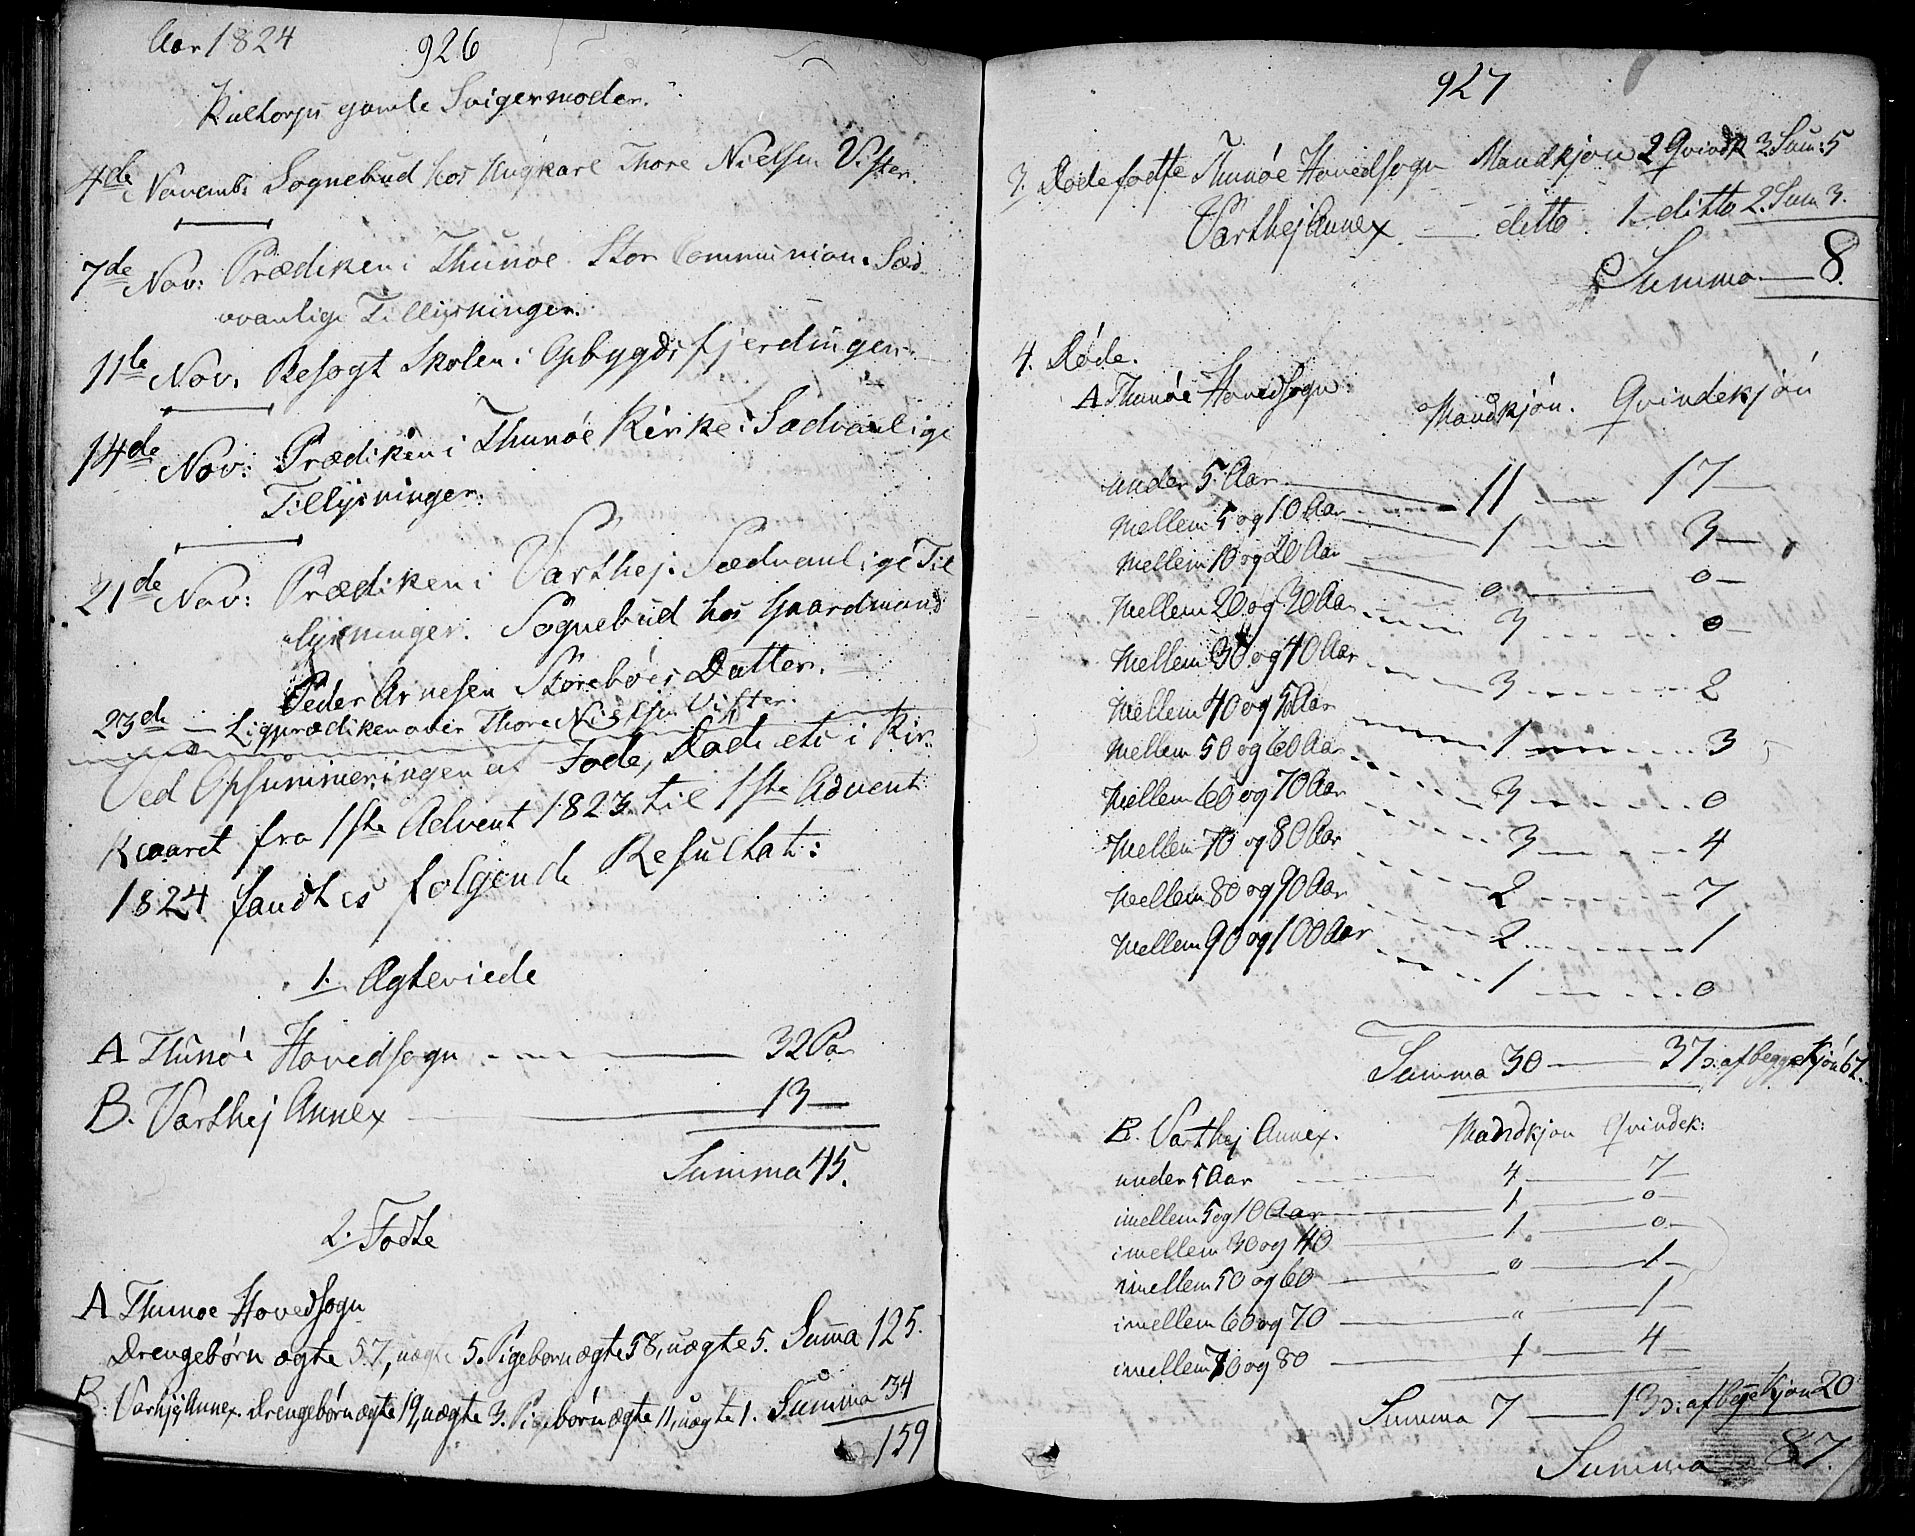 Aar 1824
926
gamle Svigermoder.
4de Novemb: Sognebud hos Ungkarl Thore Nielsen Vister.
7de Nov: Prædiken i Thunøe. Stor Communion. Sæd
vanlige Tillysninger.
11te Nov. Besøgt Skolen i Opbygdsfjerdingen.
14de Nov: Prædiken i Thunøe Kirke. Sædvanlige
Tillysninger.
21de Nov: Prædiken i Varthej. Sædvanlige Til
lysninger. Sognebud hos Gaardmand
Peder Arnesen Datter.
23de — Ligprædiken over Thore Nielsen Vister.
Ved Opsummeringen af Føde, Døde etc i Kir
keaaret fra 1ste Advent 1823 til 1ste Advent
1824 fandtes følgende Resultat:
1. Ægteviede
A Thunøe Hovedsogn 32 Par
B. Varthej Annex 13
Summa 45.
2. Fødte
A Thunøe Hovedsogn
Drengebørn ægte 57, uægte 5. Pigebørn ægte 58, uægte 5. Summa 125.
B. Varhej Annex. Drengebørn ægte 19, uægte 3. Pigebørn ægte 11, uægte 1. Summa 34
159
927
3. Dødefødte Thunøe Hovedsogn Mandkjøn 2 Qvindk 3. Sum: 5
Varthej Annex. ditto. 1. ditto 2. Sum 3.
Summa 8.
4. Døde.
A Thunøe Hovedsogn. Mandkjøn. Qvindekjøn
under 5 Aar 11 17
Mellem 5 og 10 Aar 1 3
Mellem 10 og 20 Aar 0 0
Mellem 20 og 30 Aar 3 0
Mellem 30 og 40 Aar 3 2
Mellem 40 og 50 Aar 1 3
Mellem 50 og 60 Aar 3 0
Mellem 60 og 70 Aar 3 4
Mellem 70 og 80 Aar 2 7
Mellem 80 og 90 Aar 2 1
Mellem 90 og 100 Aar 1 0
Summa 30 37 af begge Kjøn 67.
B. Varthej Annex. Mandkjøn Qvindek:
under 5 Aar 4 7
imellem 5 og 10 Aar 1 0
imellem 30 og 40 1 0
imellem 50 og 60 0 1
imellem 60 og 70 " 1
imellem 70 og 80 1 4
Summa 7 13 af begge Kjøn 20
Summa 87.